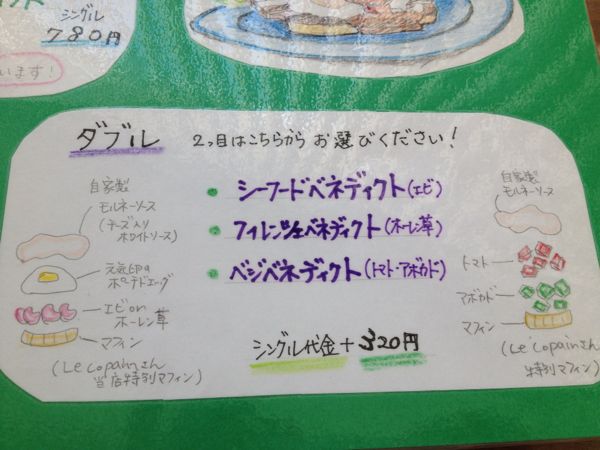 シングル
780円
います!
ダブル 2つ目はこちらから お選びください!
• シーフードベネディクト(エビ)
• フィレンツェベネディクト(ホーレン草)
• ベジベネディクト(トマト・アボカド)
シングル代金+320円
自家製
モルネーソース
(チーズ入り
ホワイトソース)
元気印の
ポーチドエッグ
エビ on
ホーレン草
マフィン
(Le Copainさん
当店特別マフィン)
自家製
モルネーソース
トマト
アボカド
マフィン
(Le Copainさん
特別マフィン)